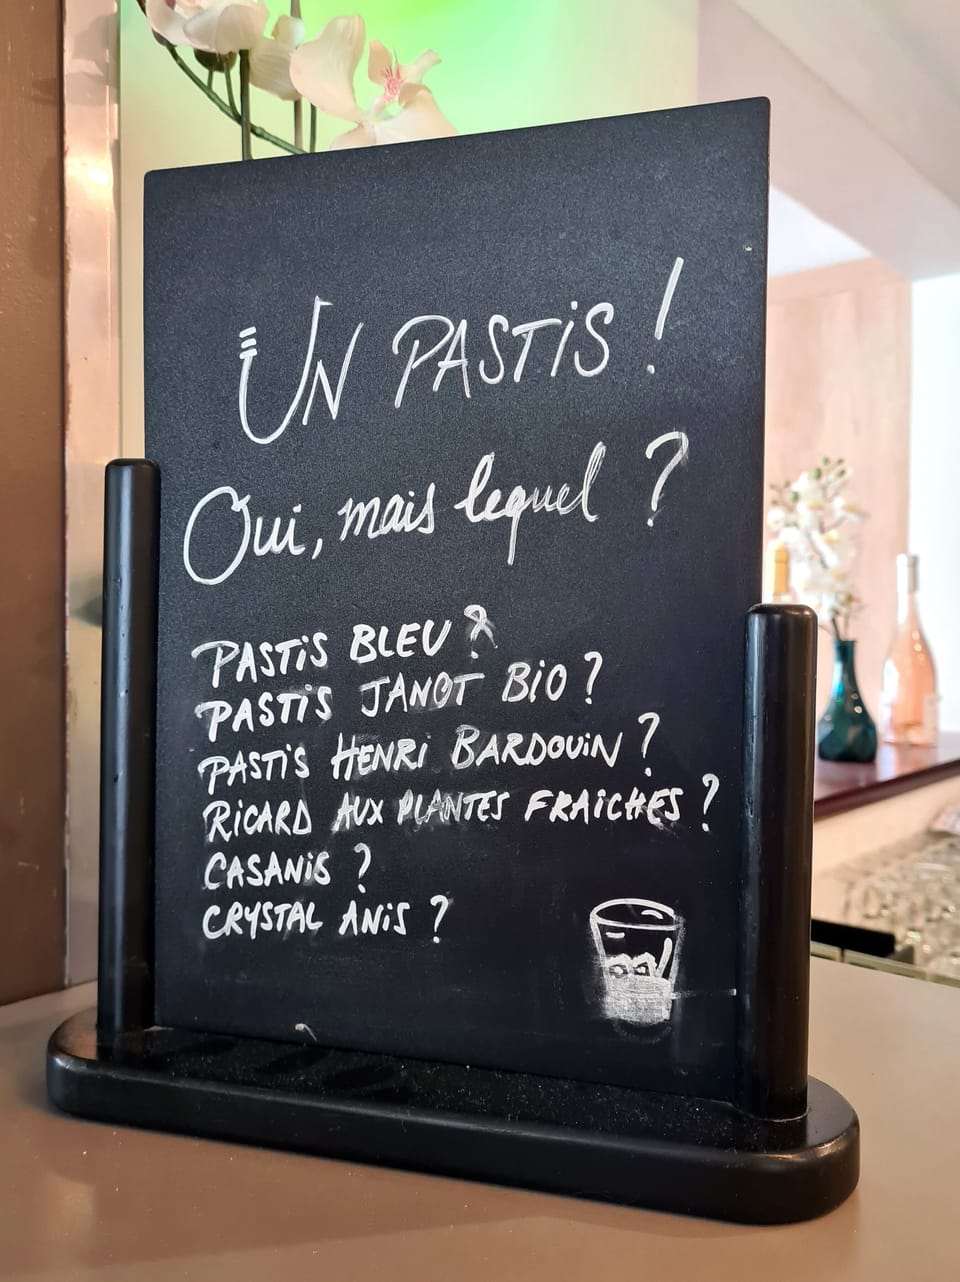 UN PASTiS !
Oui, mais lequel ?
PASTiS BLEU ?
PASTiS JANOT BiO ?
PASTiS HENRi BARDOUiN ?
RiCARD AUX PLANTES FRAiCHES ?
CASANiS ?
CRYSTAL ANiS ?